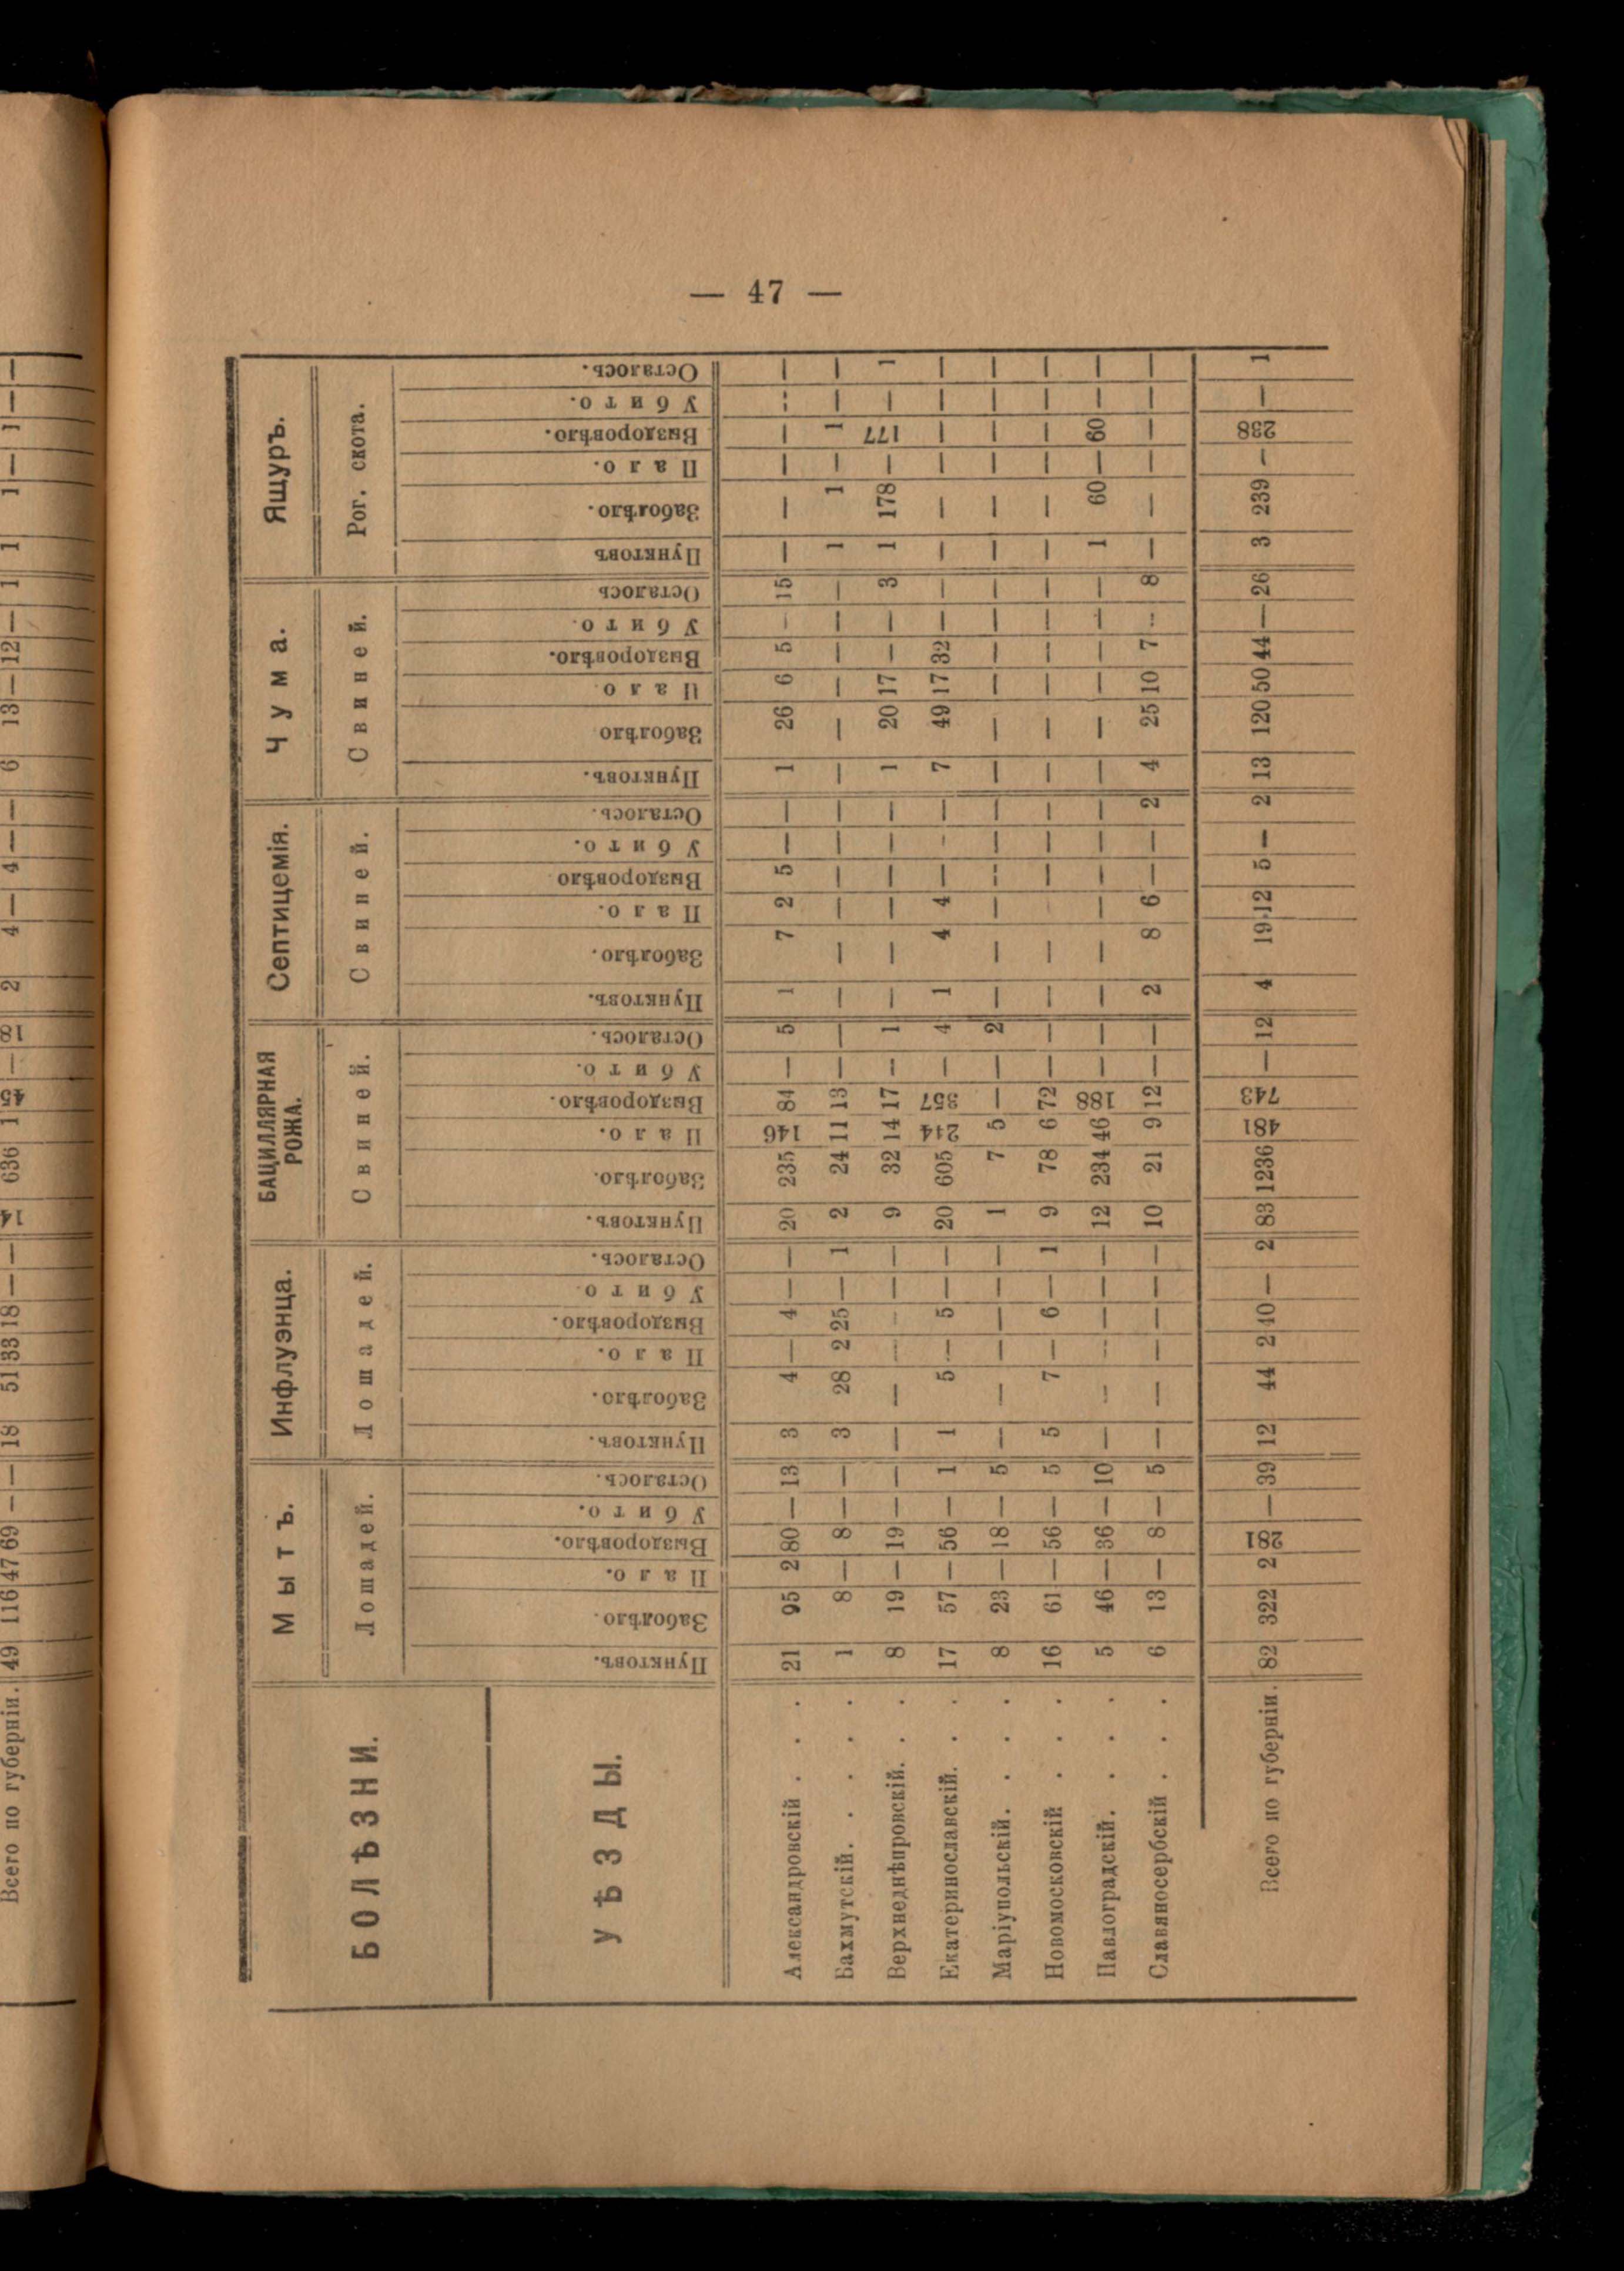 — 47 —
БОЛѢЗНИ. Мытъ. Инфлуэнца. БАЦИЛЛЯРНАЯ РОЖА. Септицемія. Чума. Ящуръ.
Лошадей. Лошадей. Свиней. Свиней. Свиней. Рог. скота.
УѢЗДЫ. Пунктовъ. Заболѣло. Пало. Выздоровѣло. Убито. Осталось. Пунктовъ. Заболѣло. Пало. Выздоровѣло. Убито Осталось. Пунктовъ. Заболѣло. Пало. Выздоровѣло. Убито. Осталось. Пунктовъ. Заболѣло. Пало. Выздоровѣло Убито. Осталось. Пунктовъ. Заболѣло Пало Выздоровѣло. Убито. Осталось Пунктовъ Заболѣло. Пало. Выздоровѣло. Убито. Осталось.
Александровскій . . . 21 95 2 80 — 13 3 4 — 4 — — 20 235 146 84 — 5 1 7 2 5 — — 1 26 6 5 — 15 — — — — — —
Бахмутскій. . . . 1 8 — 8 — — 3 28 2 25 — 1 2 24 11 13 — — — — — — — — — — — — — — 1 1 — 1 — —
Верхнеднѣпровскій. . . 8 19 — 19 — — — — — — — — 9 32 14 17 — 1 — — — — — — 1 20 17 — — 3 1 178 — 177 — 1
Екатеринославскій. . . 17 57 — 56 — 1 1 5 — 5 — — 20 605 244 357 — 4 1 4 4 — — — 7 49 17 32 — — — — — — — —
Маріупольскій. . . . 8 23 — 18 — 5 — — — — — — 1 7 5 — — 2 — — — — — — — — — — — — — — — — — —
Новомосковскій . . . 16 61 — 56 — 5 5 7 — 6 — 1 9 78 6 72 — — — — — — — — — — — — — — — — — — —
Павлоградскій. . . . 5 46 — 36 — 10 — — — — — — 12 234 46 188 — — — — — — — — — — — — — — 1 60 — 60 — —
Славяносербскій . . . 6 13 — 8 — 5 — — — — — — 10 21 9 12 — — 2 8 6 — — 2 4 25 10 7 — 8 — — — — — —
Всего по губерніи. 82 322 2 281 — 39 12 44 2 40 — 2 83 1236 481 743 — 12 4 19 12 5 — 2 13 120 50 44 — 26 3 239 — 238 — 1
Всего по губерніи. 49 116 47 69 — — 18 51 33 18 — — 14 636 1 45 — 18 2 4 — 4 — — 6 13 — 12 — 1 1 1 — 1 — —